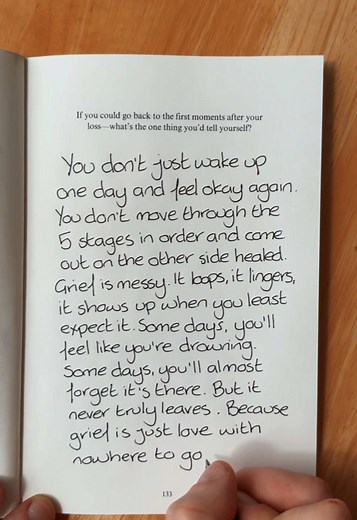 If you could go back to the first moments after your
loss—what's the one thing you'd tell yourself?
You don't just wake up
one day and feel okay again.
You don't move through the
5 stages in order and come
out on the other side healed.
Grief is messy. It loops, it lingers,
it shows up when you least
expect it. Some days, you'll
feel like you're drowning.
Some days, you'll almost
forget it's there. But it
never truly leaves. Because
grief is just love with
nowhere to go
133